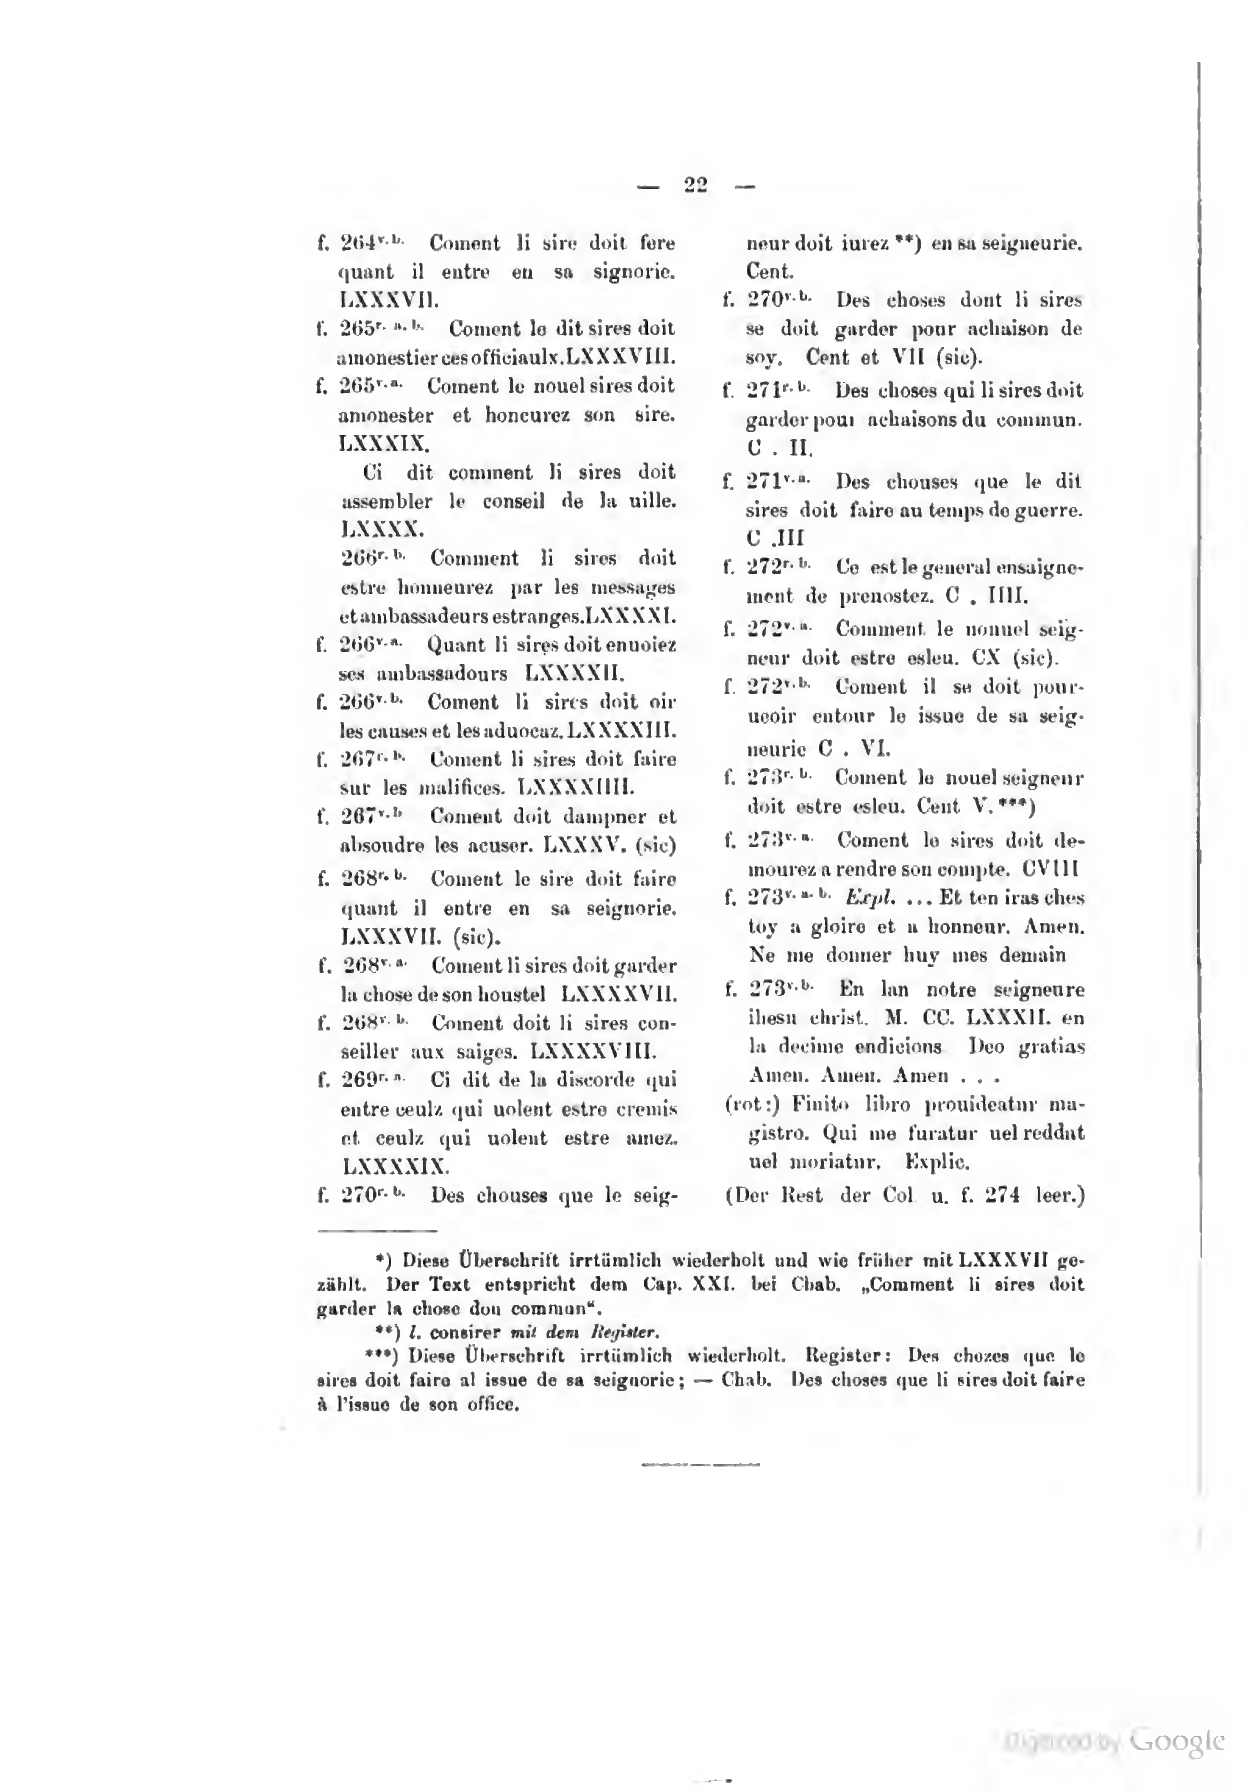 — 22 —
f. 264v. b. Coment li sire doit fere
quant il entre en sa signorie.
LXXXVII.
f. 265r. a. b. Coment le dit sires doit
amonestier ces officiaulx. LXXXVIII.
f. 265v. a. Coment le nouel sires doit
amonester et honeurez son sire.
LXXXIX.
Ci dit comment li sires doit
assembler le conseil de la uille.
LXXXX.
266r. b. Comment li sires doit
estre honneurez par les messages
et ambassadeurs estranges. LXXXXI.
f. 266v. a. Quant li sires doit enuoiez
ses ambassadours LXXXXII.
f. 266v. b. Coment li sires doit oir
les causes et les aduocaz. LXXXXIII.
f. 267r. b. Coment li sires doit faire
sur les malifices. LXXXXIIII.
f. 267v. b Coment doit dampner et
absoudre les acuser. LXXXV. (sic)
f. 268r. b. Coment le sire doit faire
quant il entre en sa seignorie.
LXXXVII. (sic).
f. 268v. a. Coment li sires doit garder
la chose de son houstel LXXXXVII.
f. 268v. b. Coment doit li sires con-
seiller aux saiges. LXXXXVIII.
f. 269r. a. Ci dit de la discorde qui
entre ceulz qui uolent estre cremis
et ceulz qui uolent estre amez.
LXXXXIX.
f. 270r. b. Des chouses que le seig-
neur doit iurez **) en sa seigneurie.
Cent.
f. 270v. b. Des choses dont li sires
se doit garder pour achaison de
soy. Cent et VII (sic).
f. 271r. b. Des choses qui li sires doit
garder pour achaisons du commun.
C . II.
f. 271v. a. Des chouses que le dit
sires doit faire au temps de guerre.
C .III
f. 272r. b. Ce est le general ensaigne-
ment de preuostez. C . IIII.
f. 272v. a. Comment le nouuel seig-
neur doit estre esleu. CX (sic).
f. 272v. b. Coment il se doit pour-
ueoir entour le issue de sa seig-
neurie C . VI.
f. 273r. b. Coment le nouel seigneur
doit estre esleu. Cent V. ***)
f. 273v. a. Coment le sires doit de-
mourez a rendre son compte. CVIII
f. 273v. a. b. Expl. ... Et ten iras ches
toy a gloire et a honneur. Amen.
Ne me donner huy mes demain
f. 273v. b. En lan notre seigneure
ihesu christ. M. CC. LXXXII. en
la decime endicions Deo gratias
Amen. Amen. Amen . . .
(rot:) Finito libro prouideatur ma-
gistro. Qui me furatur uel reddat
uel moriatur. Explic.
(Der Rest der Col u. f. 274 leer.)
*) Diese Überschrift irrtümlich wiederholt und wie früher mit LXXXVII ge-
zählt. Der Text entspricht dem Cap. XXI. bei Chab. „Comment li sires doit
garder la chose dou commun“.
**) l. consirer mit dem Register.
***) Diese Überschrift irrtümlich wiederholt. Register: Des chozes que le
sires doit faire al issue de sa seignorie; — Chab. Des choses que li sires doit faire
à l'issue de son office.
Digitized by Google